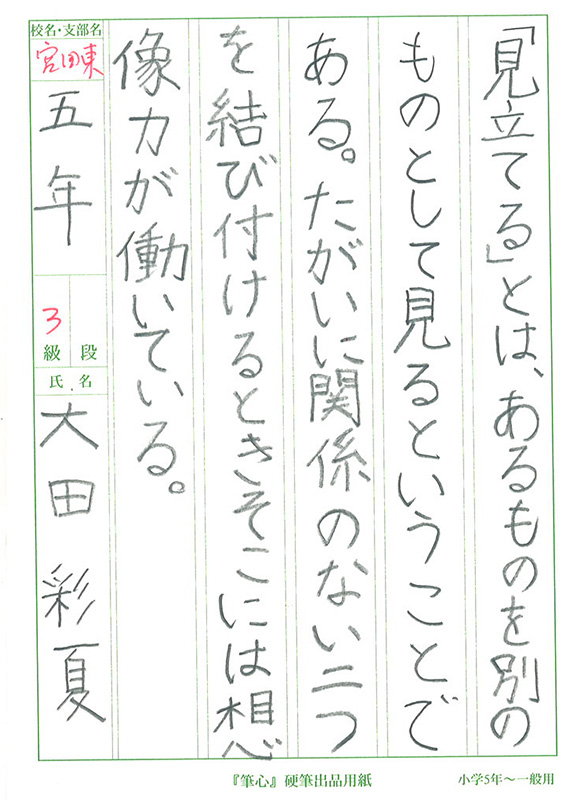 「見立てる」とは、あるものを別の
ものとして見るということで
ある。たがいに関係のない二つ
を結び付けるときそこには想
像力が働いている。
校名・支部名
宮田東
五年
3
級 段
氏 名
大田 彩夏
『筆心』硬筆出品用紙
小学5年〜一般用